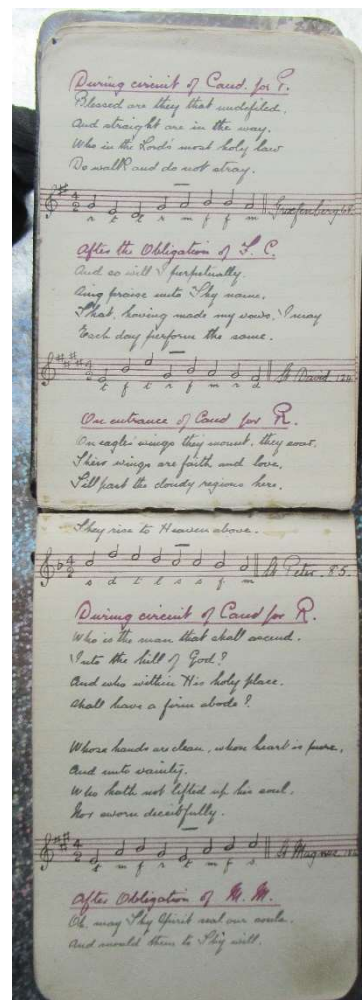 During circuit of Cand. for P.
Blessed are they that undefiled.
And straight are in the way.
Who in the Lord's most holy law
Do walk and do not stray.
Graefenberg
After the Obligation of F. C.
And so will I perpetually.
Sing praise unto Thy name.
That, having made my vows, I may
Each day perform the same.
St David 124
On entrance of Cand for R.
On eagles wings they mount, they soar.
Their wings are faith and love,
Till past the cloudy regions here.
They rise to Heaven above.
s d t l s s f m St Peter. 85.
During circuit of Cand for R.
Who is the man that shall ascend.
Into the hill of God?
And who within His holy place.
Shall have a firm abode?
Whose hands are clean, whose heart is pure,
And unto vanity.
Who hath not lifted up his soul,
Nor sworn deceitfully.
St Magnus
After Obligation of M. M.
Oh, may Thy Spirit seal our souls.
And mould them to Thy will.